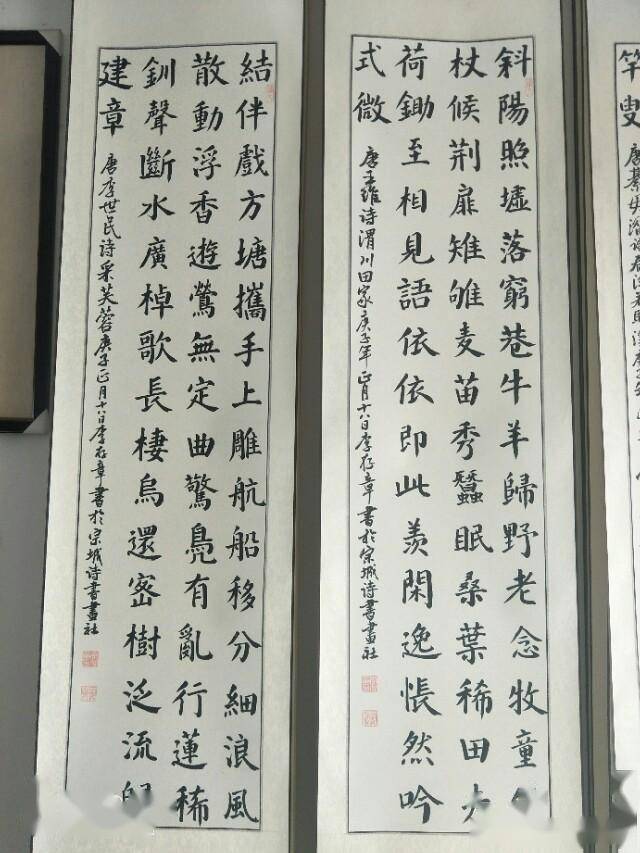 竿叟
斜陽照墟落窮巷牛羊歸野老念牧童
杖候荊扉雉雊麦苗秀蠶眠桑葉稀田夫
荷鋤至相見語依依即此羨閑逸悵然吟
式微
唐王維诗渭川田家庚子年正月十八日李存章書於宗城诗書畫社
結伴戲方塘攜手上雕航船移分細浪風
散動浮香遊鶯無定曲驚鳧有亂行蓮稀
釧聲斷水廣棹歌長棲烏還密樹泛流
建章
唐李世民诗采芙蓉庚子正月十八日李存章書於宗城诗書畫社